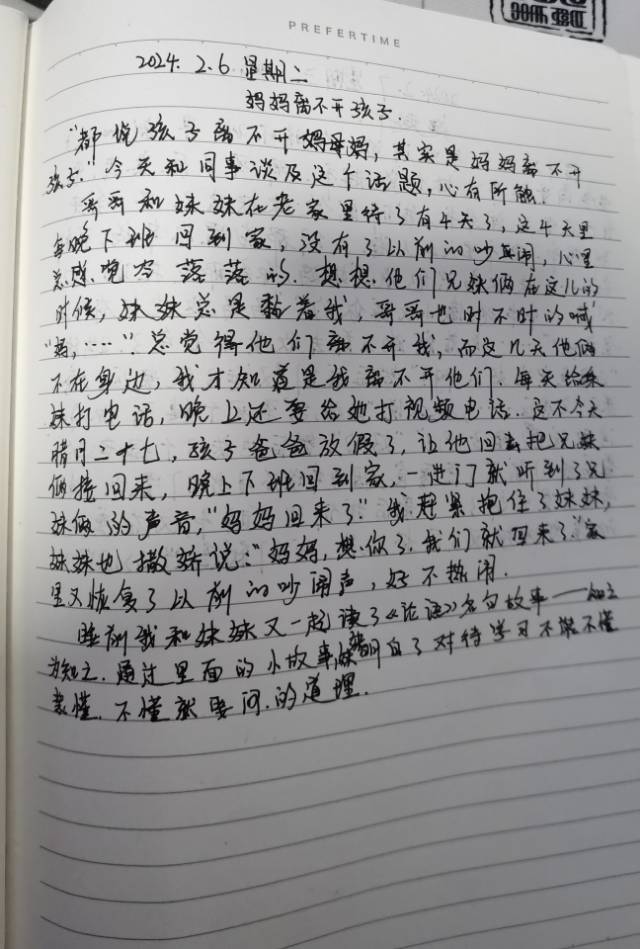 PREFERTIME
2024.2.6 星期二
妈妈离不开孩子.
"都说孩子离不开妈母妈，其实是妈妈离不开
孩子. 今天和同事谈及这个话题，心有所触.
哥哥和妹妹在老家里待了有4天了，这4天里
每晚下班回到家，没有了以前的吵闹，心里
总感觉空落落的. 想想他们兄妹俩在这儿的
时候，妹妹总是黏着我，哥哥也时不时的喊
"妈，……". 总觉得他们离不开我，而这几天他俩
不在身边，我才知道是我离不开他们. 每天给妹
妹打电话，晚上还要给她打视频电话. 这不今天
腊月二十七，孩子爸爸放假了，让他回去把兄妹
俩接回来，晚上下班回到家，一进门就听到了兄
妹俩的声音，"妈妈回来了." 我赶紧抱住了妹妹，
妹妹也撒娇说："妈妈，想你了. 我们就回来了." 家
里又恢复了以前的吵闹声，好不热闹.
睡前我和妹妹又一起读了《论语》名句故事——知之
为知之. 通过里面的小故事，妹妹明白了对待学习不能不懂
装懂. 不懂就要问.的道理.